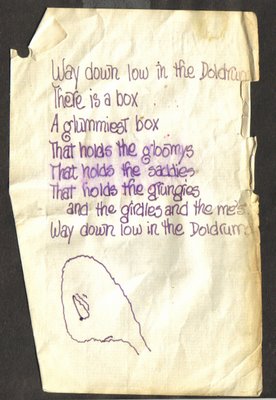 Way down low in the Doldrum
There is a box
A glummiest box
That holds the gloomys
That holds the saddies
That holds the grungies
and the girdles and the me's
Way down low in the Doldrum